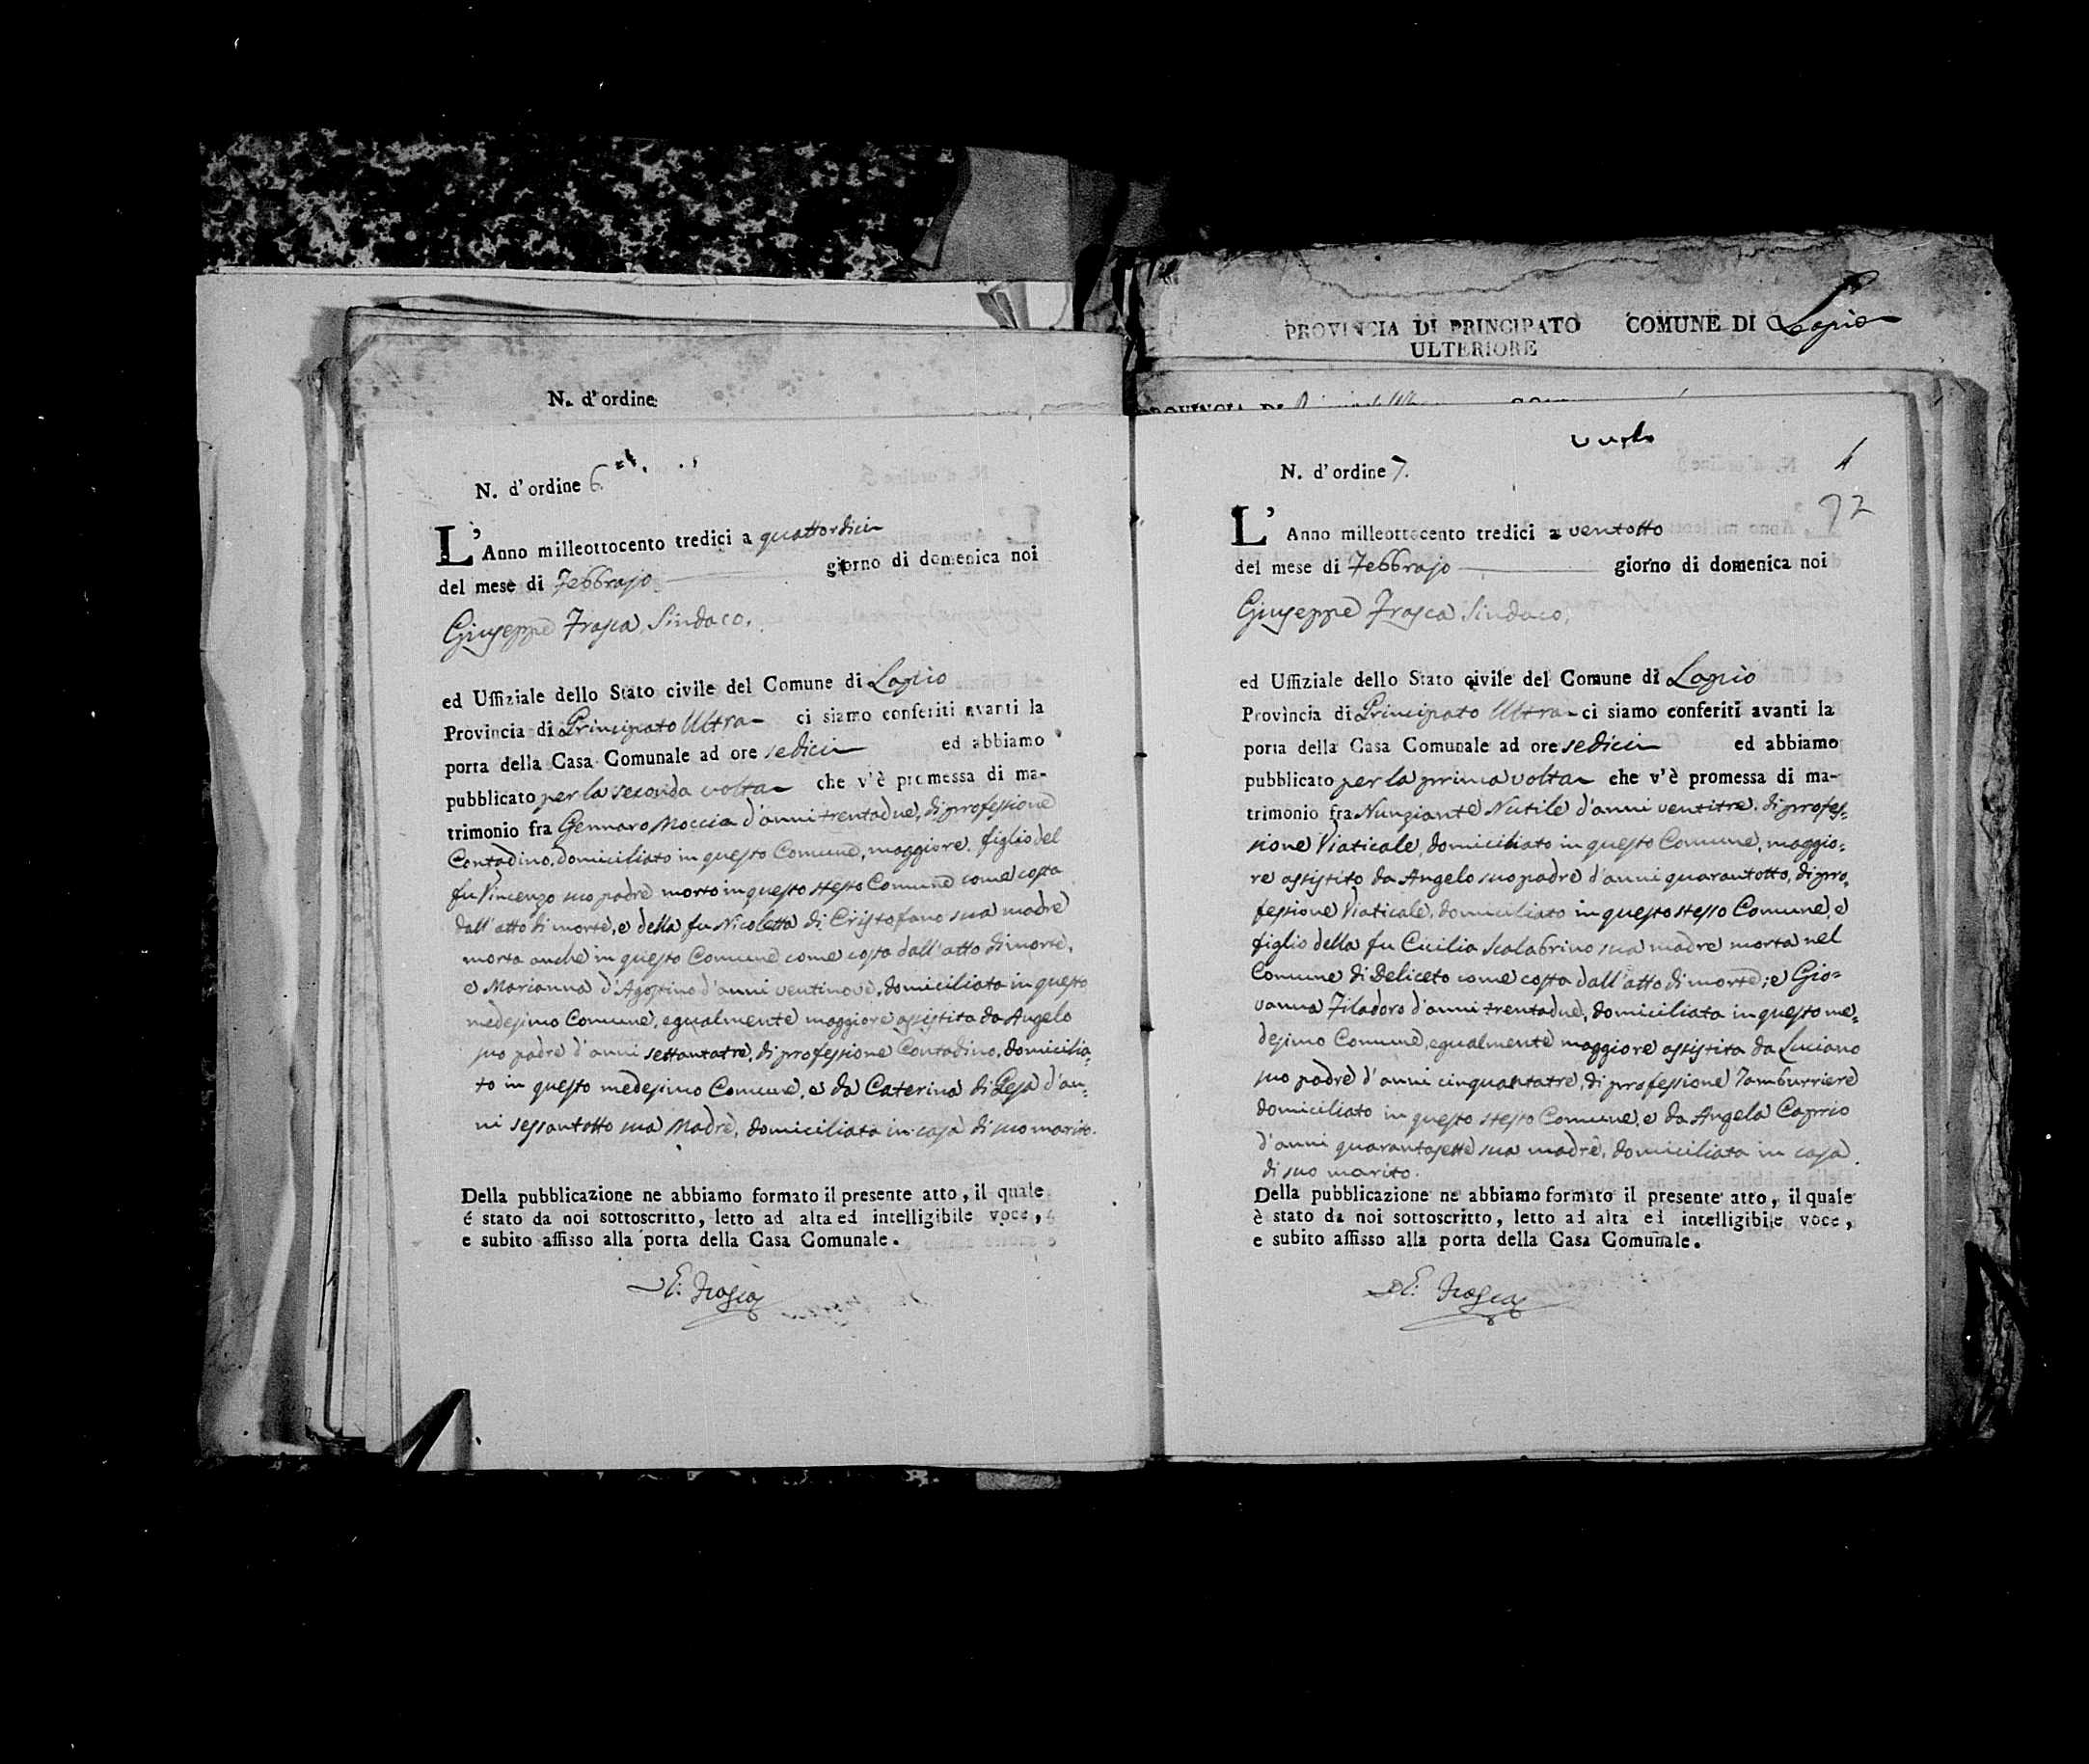 N. d'ordine
N. d'ordine 6.
L'Anno milleottocento tredici a quattordici
del mese di Febbrajo giorno di domenica noi
Giuseppe Frasca Sindaco.
ed Uffiziale dello Stato civile del Comune di Lapio
Provincia di Principato Ultra ci siamo conferiti avanti la
porta della Casa Comunale ad ore sedici ed abbiamo
pubblicato per la seconda volta che v'è promessa di ma-
trimonio fra Gennaro Moccia d'anni trentadue, di professione
Contadino, domiciliato in questo Comune, maggiore, figlio del
fu Vincenzo suo padre morto in questo stesso Comune come costa
dall'atto di morte, e della fu Nicoletta di Cristofano sua madre
morta anche in questo Comune come costa dall'atto di morte,
e Marianna d'Agostino d'anni ventinove, domiciliata in questo
medesimo Comune, egualmente maggiore assistita da Angelo
suo padre d'anni settantatre, di professione Contadino, domicilia=
to in questo medesimo Comune, e da Caterina di Gesa d'an=
ni sessantotto sua Madre, domiciliata in casa di suo marito.
Della pubblicazione ne abbiamo formato il presente atto, il quale
é stato da noi sottoscritto, letto ad alta ed intelligibile voce,
e subito affisso alla porta della Casa Comunale.
Frasca
PROVINCIA DI PRINCIPATO COMUNE DI Lapio
ULTERIORE
PROVINCIA DI
N. d'ordine 7.
L'Anno milleottocento tredici a ventotto
del mese di Febbrajo giorno di domenica noi
Giuseppe Frasca Sindaco,
ed Uffiziale dello Stato civile del Comune di Lapio
Provincia di Principato Ultra ci siamo conferiti avanti la
porta della Casa Comunale ad ore sedici ed abbiamo
pubblicato per la prima volta che v'è promessa di ma-
trimonio fra Nunziante Nutile d'anni ventitre, di profes=
sione Viaticale, domiciliato in questo Comune, maggio=
re assistito da Angelo suo padre d'anni quarantotto, di pro=
fessione Viaticale, domiciliato in questo stesso Comune, e
figlio della fu Cicilia Scalabrino sua madre morta nel
Comune di Deliceto come costa dall'atto di morte; e Gio=
vanna Filadoro d'anni trentadue, domiciliata in questo me=
desimo Comune, egualmente maggiore assistita da Luciano
suo padre d'anni cinquantatre, di professione Tamburriere
domiciliato in questo stesso Comune, e da Angela Caprio
d'anni quarantasette sua madre, domiciliata in casa
di suo marito.
Della pubblicazione ne abbiamo formato il presente atto, il quale
è stato da noi sottoscritto, letto ad alta ed intelligibile voce,
e subito affisso alla porta della Casa Comunale.
Frasca